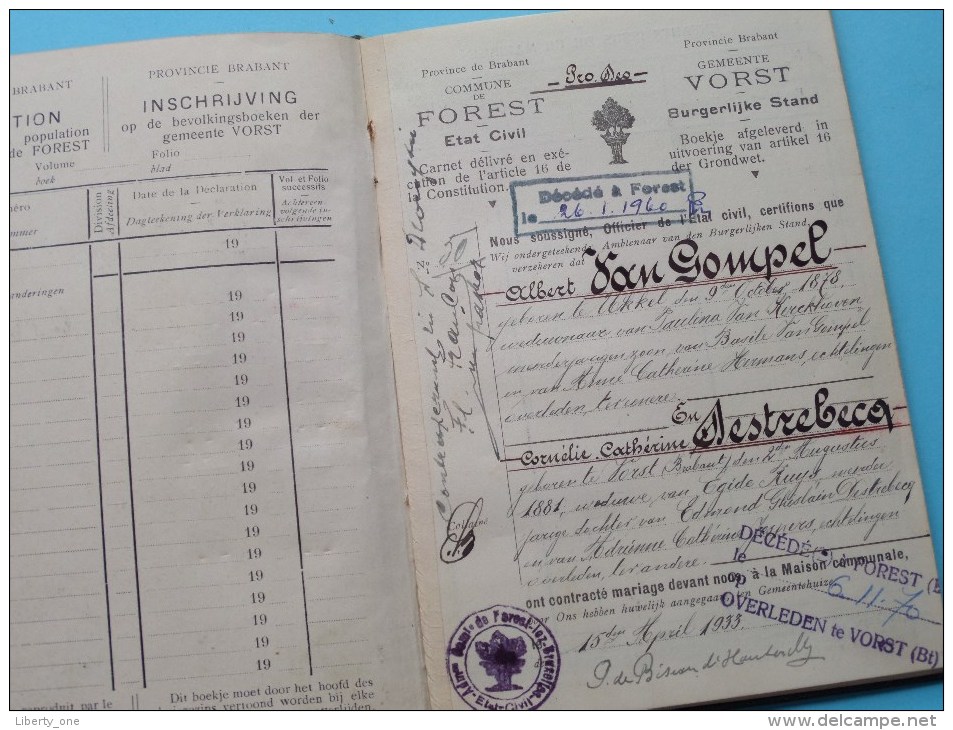 BRABANT
TION
population
de FOREST
Volume
boek
éro
mmer
anderingen
PROVINCIE BRABANT
INSCHRIJVING
op de bevolkingsboeken der
gemeente VORST
Folio
blad
Division
Afdeeling
Date de la Déclaration
Dagteekening der Verklaring
Vol et Folio
successifs
Achtereen-
volgende in-
schrijvingen
19
19
19
19
19
19
19
19
19
19
19
Dit boekje moet door het hoofd des
vertoond worden bij elke
Province de Brabant
COMMUNE
DE
FOREST
Etat Civil
Carnet délivré en exé-
cution de l'article 16 de
Constitution.
Pro Deo
Provincie Brabant
GEMEENTE
VORST
Burgerlijke Stand
Boekje afgeleverd in
uitvoering van artikel 16
der Grondwet.
Décédé à Forest
le 26.1.1960
Nous soussigné, Officier de l'Etat civil, certifions que
Wij ondergeteekende, Ambtenaar van den Burgerlijken Stand,
verzekeren dat
Albert Van Gompel
geboren te Ukkel den 9den October 1878,
weduwnaar van Paulina Van Kerckhoven
meerderjarigen zoon van Basile Van Gompel
en van Anne Catherine Hermans, echtelingen
overleden, ter eenere.
En
Cornélie Cathérine Destrebecq
geboren te Vorst (Brabant) den 2den Augustus
1881, weduwe van Egide Ruys, meerder
jarige dochter van Edmond Ghislain Destrebecq
en van Adrienne Cathérine echtelingen
overleden, ter andere.
ont contracté mariage devant nous, à la Maison communale,
voor Ons hebben huwelijk aangegaan, ten Gemeentehuize
15den April 1933
DÉCÉDÉ(E) à FOREST (B
le
op 6-11-70
OVERLEDEN te VORST (Bt)
Adm.on Comle de Forest-lez-Bruxelles
Etat-Civil
Liberty_one
www.delcampe.net